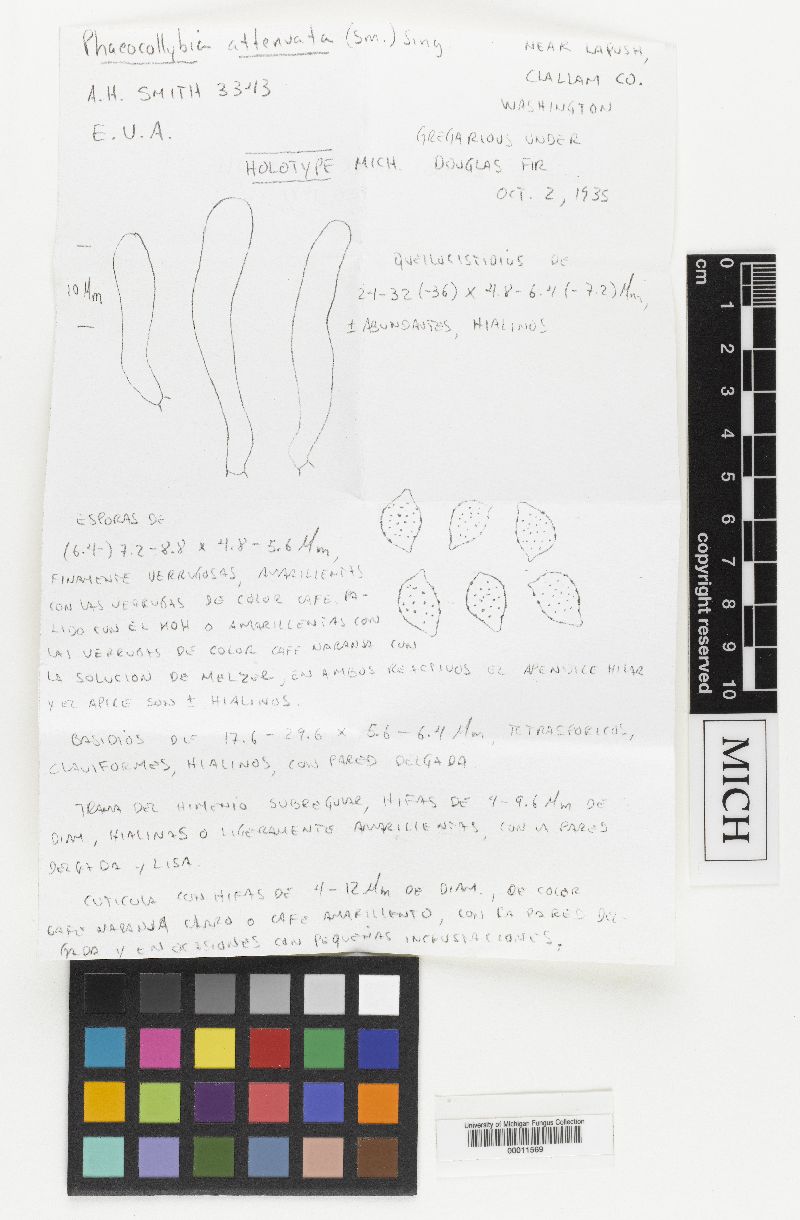 Phaeocollybia attenuata (Sm.) Sing
NEAR LAPUSH,
CLALLAM CO.
WASHINGTON
A.H. SMITH 3343
E.U.A.
GREGARIOUS UNDER
DOUGLAS FIR
HOLOTYPE MICH.
OCT. 2, 1935
10 µm
QUEILOCISTIDIOS DE
24-32 (-36) x 4.8-6.4 (-7.2) µm,
± ABUNDANTES, HIALINOS
ESPORAS DE
(6.4-) 7.2-8.8 x 4.8-5.6 µm,
FINAMENTE VERRUGOSAS, AMARILLENTAS
CON LAS VERRUGAS DE COLOR CAFE PA-
LIDO CON EL KOH O AMARILLENTAS CON
LAS VERRUGAS DE COLOR CAFE NARANJA CON
LA SOLUCION DE MELZER, EN AMBOS REACTIVOS EL APENDICE HILAR
Y EL APICE SON ± HIALINOS.
BASIDIOS DE 17.6-29.6 x 5.6-6.4 µm, TETRASPORICOS,
CLAVIFORMES, HIALINOS, CON PARED DELGADA
TRAMA DEL HIMENIO SUBREGULAR, HIFAS DE 4-9.6 µm DE
DIAM, HIALINAS O LIGERAMENTE AMARILLENTAS, CON LA PARED
DELGADA Y LISA.
CUTICULA CON HIFAS DE 4-12 µm DE DIAM., DE COLOR
CAFE NARANJA CLARO O CAFE AMARILLENTO, CON LA PARED DEL-
GADA Y EN OCASIONES CON PEQUEÑAS INCRUSTACIONES.
cm
0
1
2
3
4
5
6
7
8
9
10
copyright reserved
MICH
University of Michigan Fungus Collection
00011569